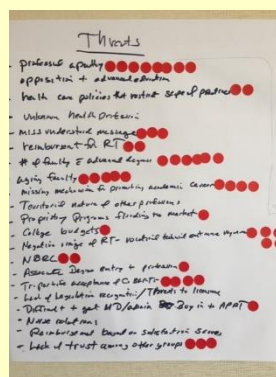 Threats
- professional apathy
opposition + advanced education
- health care policies that restrict scope of practice
- unknown health profession
- Miss understood message
- reimbursement for RT
- # of faculty c̄ advanced degrees
- aging faculty
- missing mechanism for promoting academic career
- Territorial nature of other professions
- Proprietary Programs flooding the market
- College budgets
- Negative image of RT - vocational technical entrance
- NBRC
- Associate Degree entry + profession
- Tri-partite acceptance of
- Lack of legislative recognition/Threats to licensure
- Difficult + get MD/admin Buy in + APRT
- Nurse solutions
- Reimbursement based on satisfaction scores
- Lack of trust among other groups